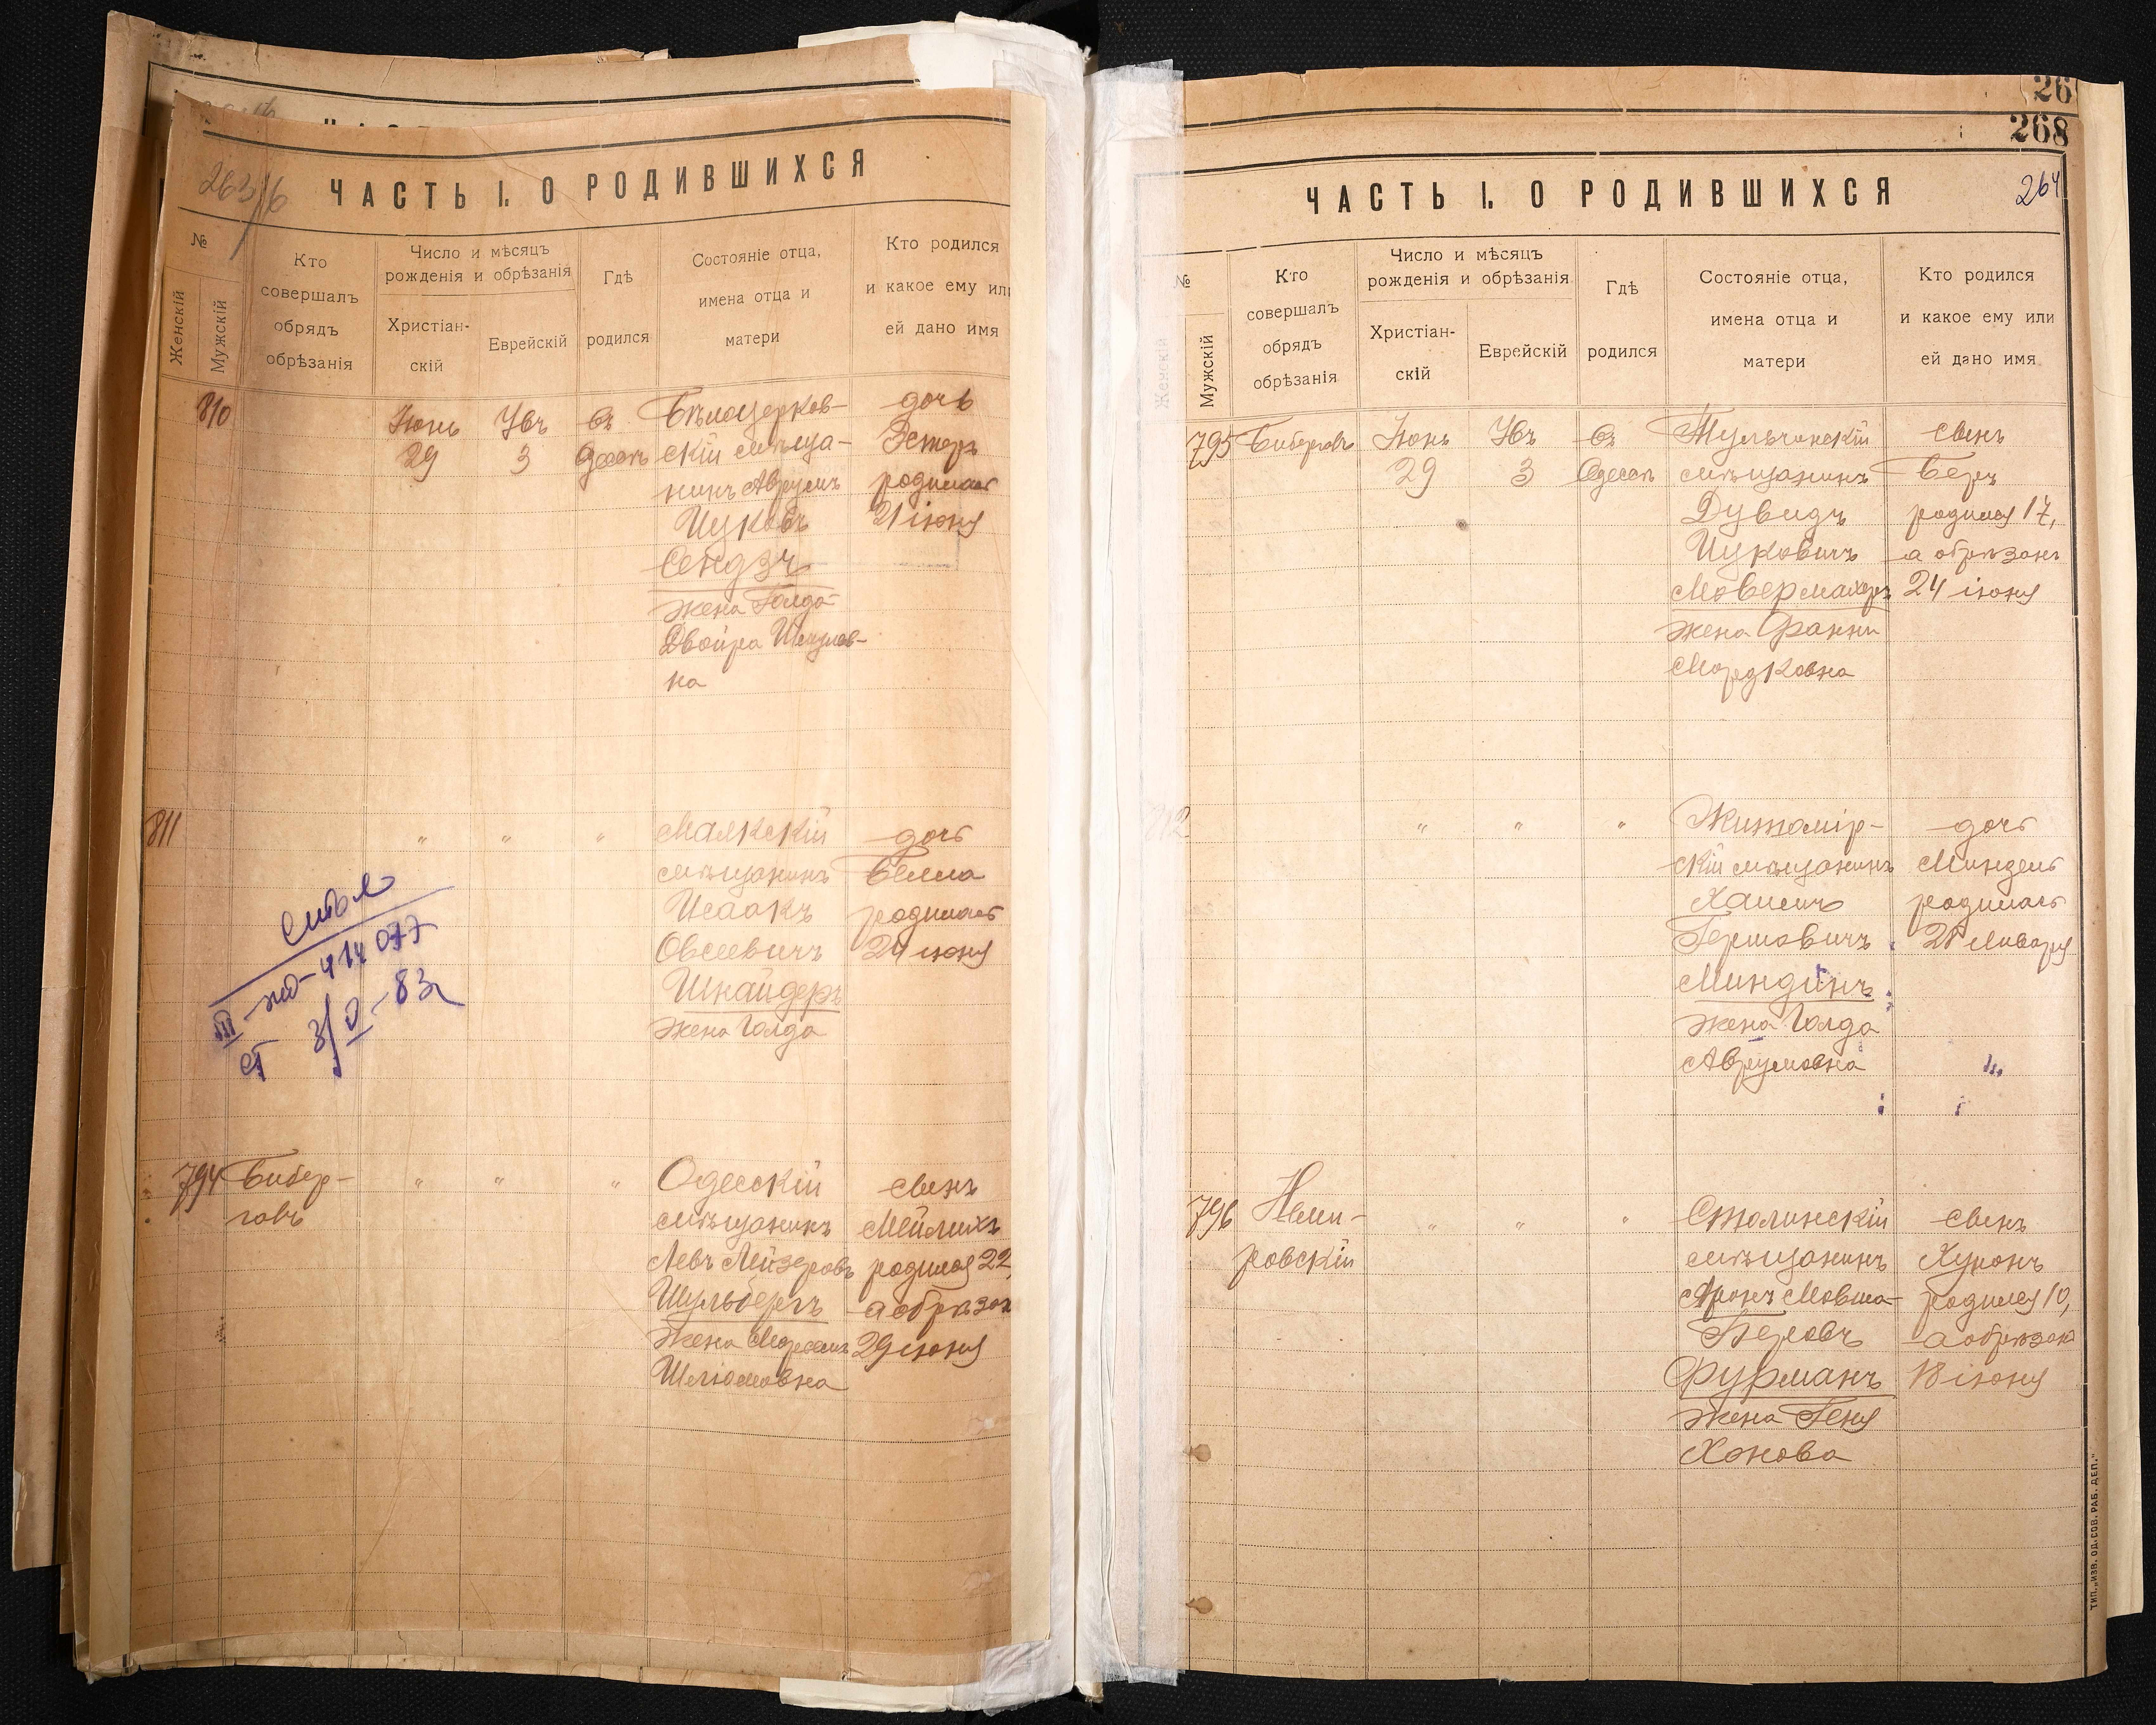 263/б
ЧАСТЬ I. О РОДИВШИХСЯ
№
Женскій
Мужскій
Кто
совершалъ
обрядъ
обрѣзанія
Число и мѣсяцъ
рожденія и обрѣзанія
Христіан-
скій
Еврейскій
Гдѣ
родился
Состояніе отца,
имена отца и
матери
Кто родился
и какое ему или
ей дано имя
810
Іюнь
29
3
въ
Одессѣ
Бѣлоцерков-
скій мѣща-
нинъ Аврумъ
Ицковъ
жена Голда
Двойра
на
дочь
Эстеръ
родилась
21 іюня
811
" " "
Маякскій
мѣщанинъ
Исаакъ
Овсеевичъ
Шнайдеръ
жена Голда
дочь
Белла
родилась
24 іюня
III
794
Бибер-
говъ
" " "
Одесскій
мѣщанинъ
Левъ Лейзеровъ
Шульбергъ
жена
Шліомовна
сынъ
Мейлихъ
родился 22,
а обрѣзан
29 іюня
26
268
264
ЧАСТЬ I. О РОДИВШИХСЯ
№
Женскій
Мужскій
Кто
совершалъ
обрядъ
обрѣзанія
Число и мѣсяцъ
рожденія и обрѣзанія
Христіан-
скій
Еврейскій
Гдѣ
родился
Состояніе отца,
имена отца и
матери
Кто родился
и какое ему или
ей дано имя
795
Биберговъ
Іюнь
29
3
въ
Одессѣ
Тульчинскій
мѣщанинъ
Дувидъ
Ицковичъ
Мовермахеръ
жена Фанни
Мордковна
сынъ
Беръ
родился 17,
а обрѣзанъ
24 іюня
812
" " "
Житомір-
скій мѣщанинъ
Хаимъ
Гершовичъ
Миндинъ
жена Голда
Аврумовна
дочь
Миндель
родилась
Января
796
Неми-
ровскій
" " "
Столинскій
мѣщанинъ
Аронъ Мовша-
Беровъ
Фурманъ
жена Геня
Хонова
сынъ
родился 10,
а обрѣзан
18 іюня
ТИП. „ИЗВ. ОД. СОВ. РАБ. ДЕП."